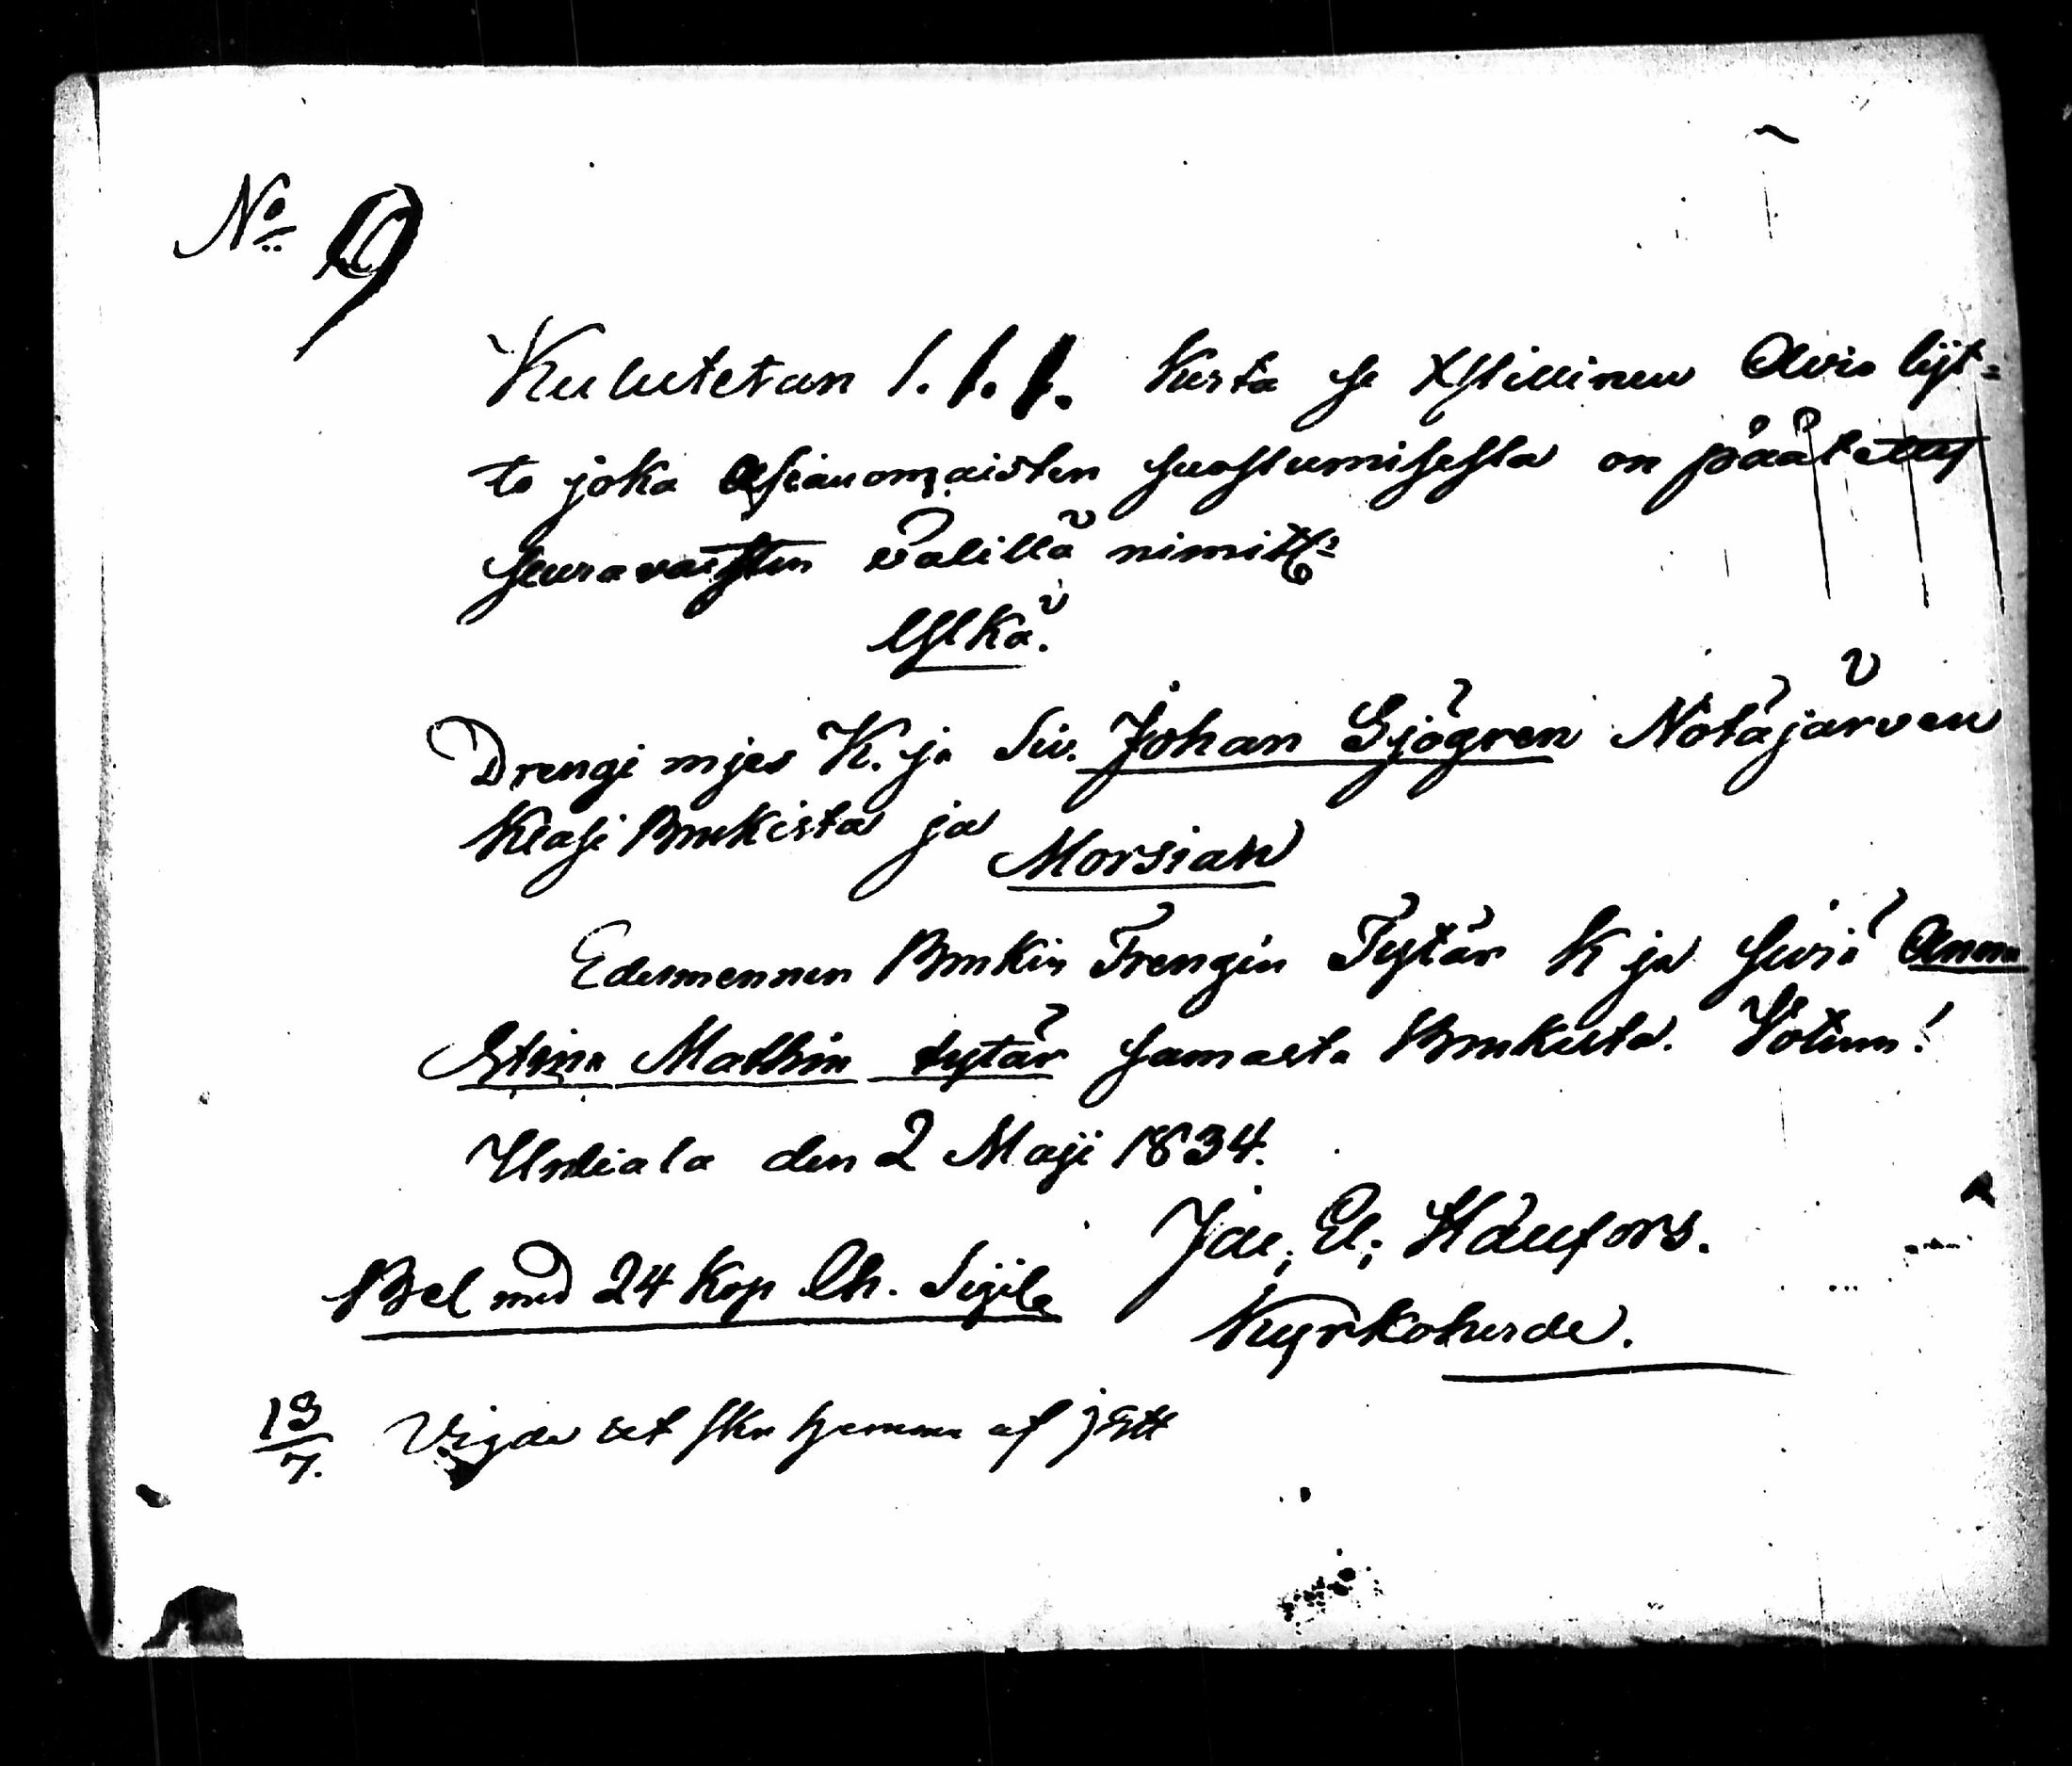 No 9
Kulutetan 1. 1. 1. Kerta se Xstillinen Avio lijt=
to joka Asianomaisten suostumisesta on päätetty
seuravaisten välillä nimitt:
Ylkä.
Drengi mjes K. ja Siv. Johan Sjögren Nötäjärven
Klasi Brukista ja Morsian
Edesmennen Brukin Trengin Tytär K ja Siviä Anna
Stina Mathin tytär samasta Brukista. Votum!
Urdiala den 2 Maji 1834.
Jac. El. Hänfors.
Bel med 24 Kop Ch. Sigil.
Kyrkoherde.
13/7. Vigda hemma af